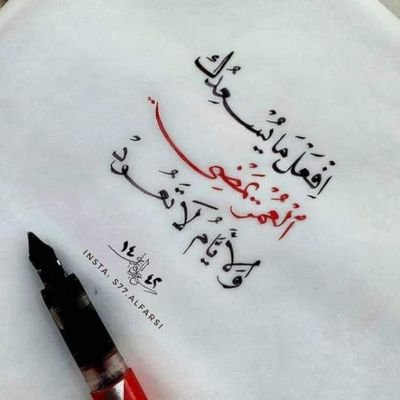 اِفْعَلْ مَا يُسْعِدُك
اَلْعُمْرُ يَمْضِي
وَالْأَيَّامُ لَا تَعُودْ
١٤٤٢
INSTA: S77.ALFARSI